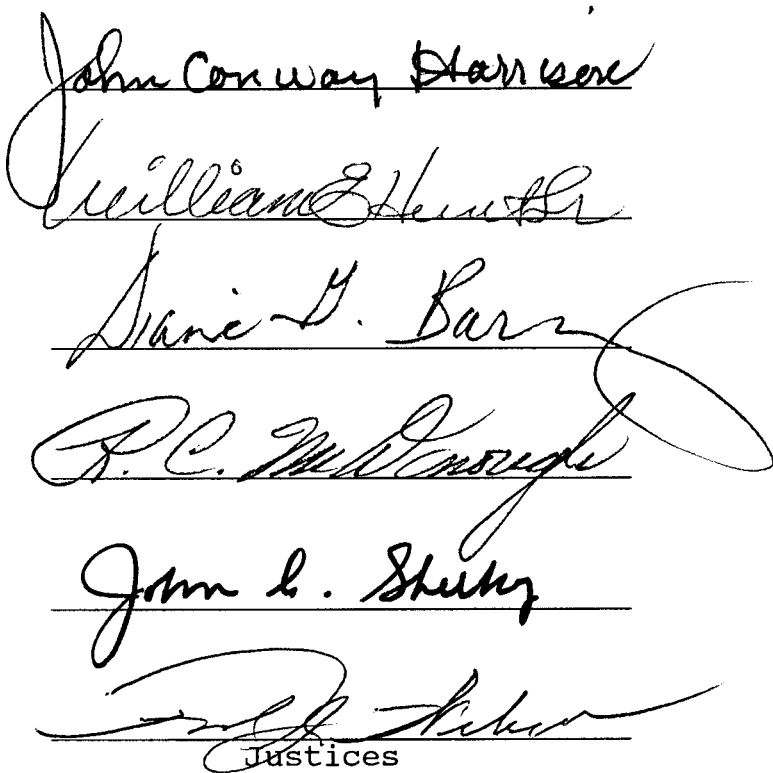 John Conway Harrison
William E Hunt Sr
Diane G. Barz
R. C. McDonough
John C. Sheehy
Justices